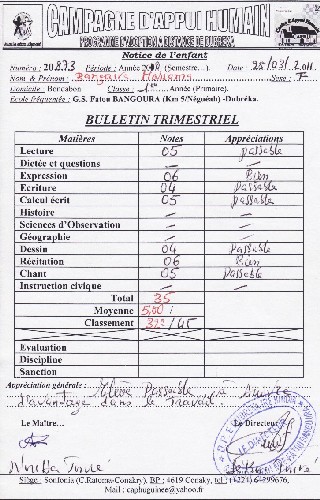 CAMPAGNE D'APPUI HUMAIN
PROGRAMME D'ADOPTION A DISTANCE DE DUBREKA
Notice de l'enfant
Numéro : 20833 Période : Année (Semestre…). Date : 25/03/2011
Nom & Prénom : Sexe : F
Domicile : Bencabon Classe : 1ère Année (Primaire).
Ecole fréquentée : G.S. Fatou BANGOURA (Km 5/Négueah) -Dubréka.
BULLETIN TRIMESTRIEL
Matières Notes Appréciations
Lecture 05 passable
Dictée et questions — —
Expression 06 Bien
Ecriture 04 passable
Calcul écrit 05 passable
Histoire — —
Sciences d'Observation — —
Géographie — —
Dessin 04 Passable
Récitation 06 Bien
Chant 05 Passable
Instruction civique — —
Total 35
Moyenne 5,00
Classement /45
Evaluation
Discipline
Sanction
Appréciation générale : Elève Passable à
d'avantage dans le Travail.
Le Maître… Le Directeur
Siège : Sonfonia (C.Ratoma-Conakry), BP : 4619 Conaky, tel : (+221) 64299676,
Mail : caphuguinee@yahoo.fr